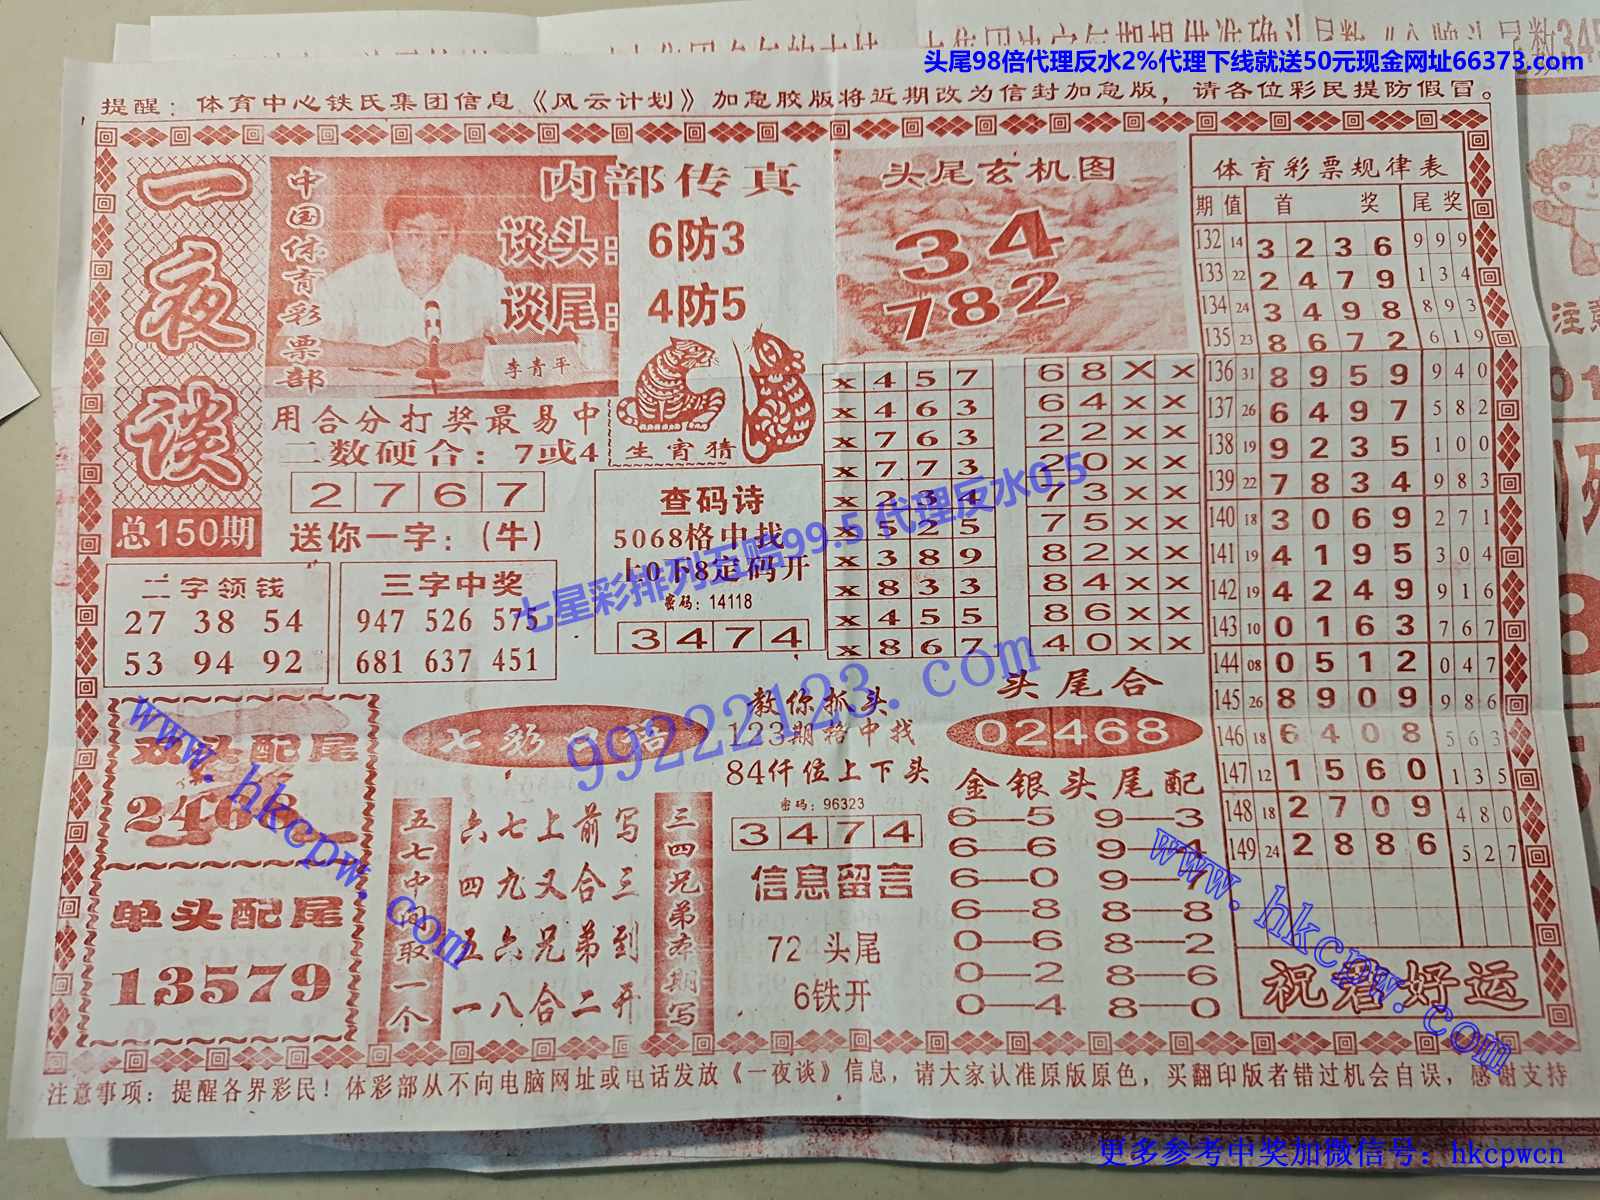 头尾98倍代理反水2%代理下线就送50元现金网址66373.com
提醒：体育中心铁氏集团信息《风云计划》加急胶版将近期改为信封加急版，请各位彩民提防假冒。
一夜谈
总150期
中国体育彩票部
内部传真
谈头：6防3
谈尾：4防5
李青平
用合分打奖最易中
二数硬合：7或4
2767
送你一字：(牛)
生宵猜
查码诗
5068格中找
上0下8定码开
密码：14118
3474
二字领钱
27 38 54
53 94 92
三字中奖
947 526 575
681 637 451
头尾玄机图
34
782
x 4 5 7
x 4 6 3
x 7 6 3
x 7 7 3
x 2 3 4
x 5 2 5
x 3 8 9
x 8 3 3
x 4 5 5
x 8 6 7
6 8 X x
6 4 x x
2 2 x x
2 0 x x
7 3 x x
7 5 x x
8 2 x x
8 4 x x
8 6 x x
4 0 x x
体育彩票规律表
期 值 首 奖 尾 奖
132 14 3 2 3 6 9 9 9
133 22 2 4 7 9 1 3 4
134 24 3 4 9 8 8 9 3
135 23 8 6 7 2 6 1 9
136 31 8 9 5 9 9 4 0
137 26 6 4 9 7 5 8 2
138 19 9 2 3 5 1 0 0
139 22 7 8 3 4 9 8 3
140 18 3 0 6 9 2 7 1
141 19 4 1 9 5 3 0 4
142 19 4 2 4 9 9 1 6
143 10 0 1 6 3 7 6 7
144 08 0 5 1 2 0 4 7
145 26 8 9 0 9 9 8 6
146 18 6 4 0 8 5 6 3
147 12 1 5 6 0 1 3 5
148 18 2 7 0 9 4 8 0
149 24 2 8 8 6 5 2 7
祝君好运
双头配尾
2468
单头配尾
13579
七彩
五七中间取一个
六七上前写
四九又合三
五六兄弟到
一八合二开
三四兄弟本期写
教你抓头
123期格中找
84仟位上下头
密码：96323
3474
信息留言
72头尾
6铁开
头尾合
02468
金银头尾配
6—5 9—3
6—6 9—4
6—0 9—7
6—8 8—8
0—6 8—2
0—2 8—6
0—4 8—0
注意事项：提醒各界彩民！体彩部从不向电脑网址或电话发放《一夜谈》信息，请大家认准原版原色，买翻印版者错过机会自误，感谢支持
七星彩排列五赔99.5 代理反水0.5
99222123.com
www.hkcpw.com
www.hkcpw.com
更多参考中奖加微信号：hkcpwcn